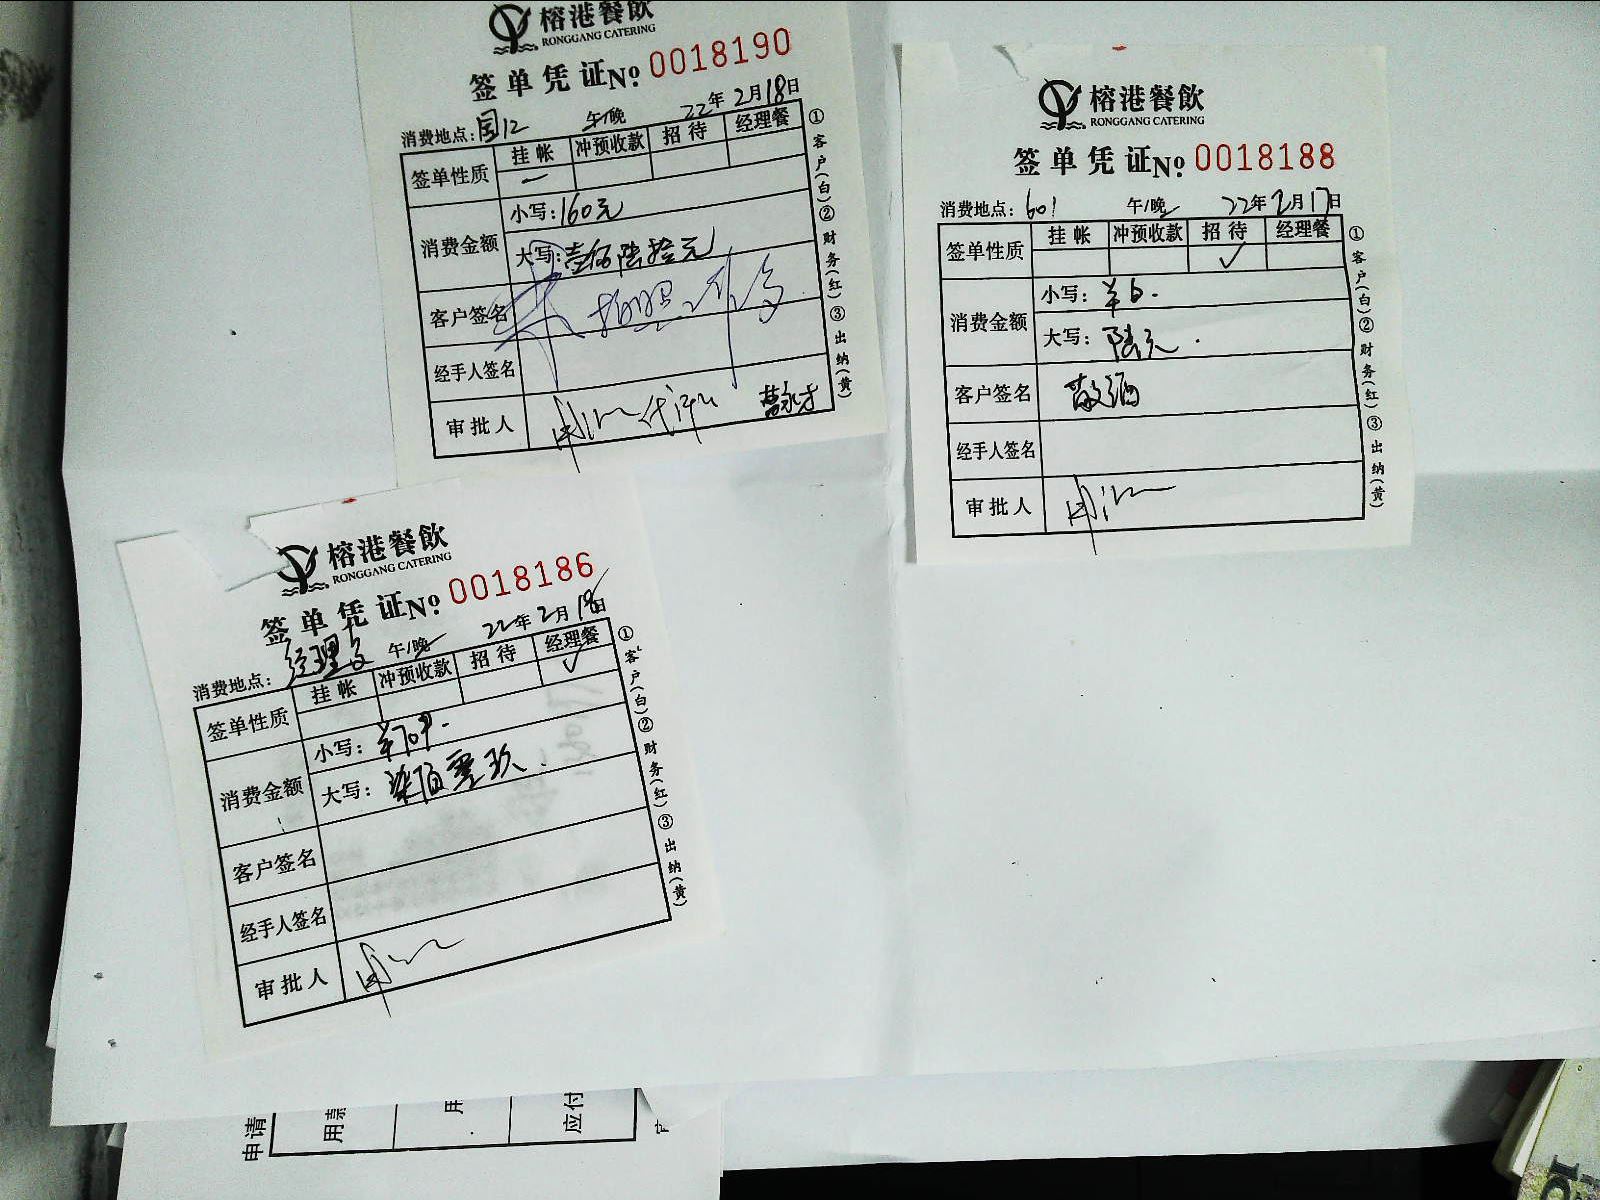 榕港餐飲
RONGGANG CATERING
签单凭证No. 0018190
消费地点: 国12 午/晚 22年2月18日
签单性质 挂帐 冲预收款 招待 经理餐
消费金额 小写: 160元
大写: 壹佰陆拾元
客户签名
经手人签名
审批人
①客户(白)②财务(红)③出纳(黄)
榕港餐飲
RONGGANG CATERING
签单凭证No. 0018188
消费地点: 601 午/晚 22年2月17日
签单性质 挂帐 冲预收款 招待 经理餐
✓
消费金额 小写: ¥6.
大写: 陆元.
客户签名 敬酒
经手人签名
审批人
①客户(白)②财务(红)③出纳(黄)
榕港餐飲
RONGGANG CATERING
签单凭证No. 0018186
消费地点: 经理 午/晚 22年2月18日
签单性质 挂帐 冲预收款 招待 经理餐
✓
消费金额 小写: ¥709.
大写: 柒佰零玖.
客户签名
经手人签名
审批人
①客户(白)②财务(红)③出纳(黄)
申请
用款
用
应付